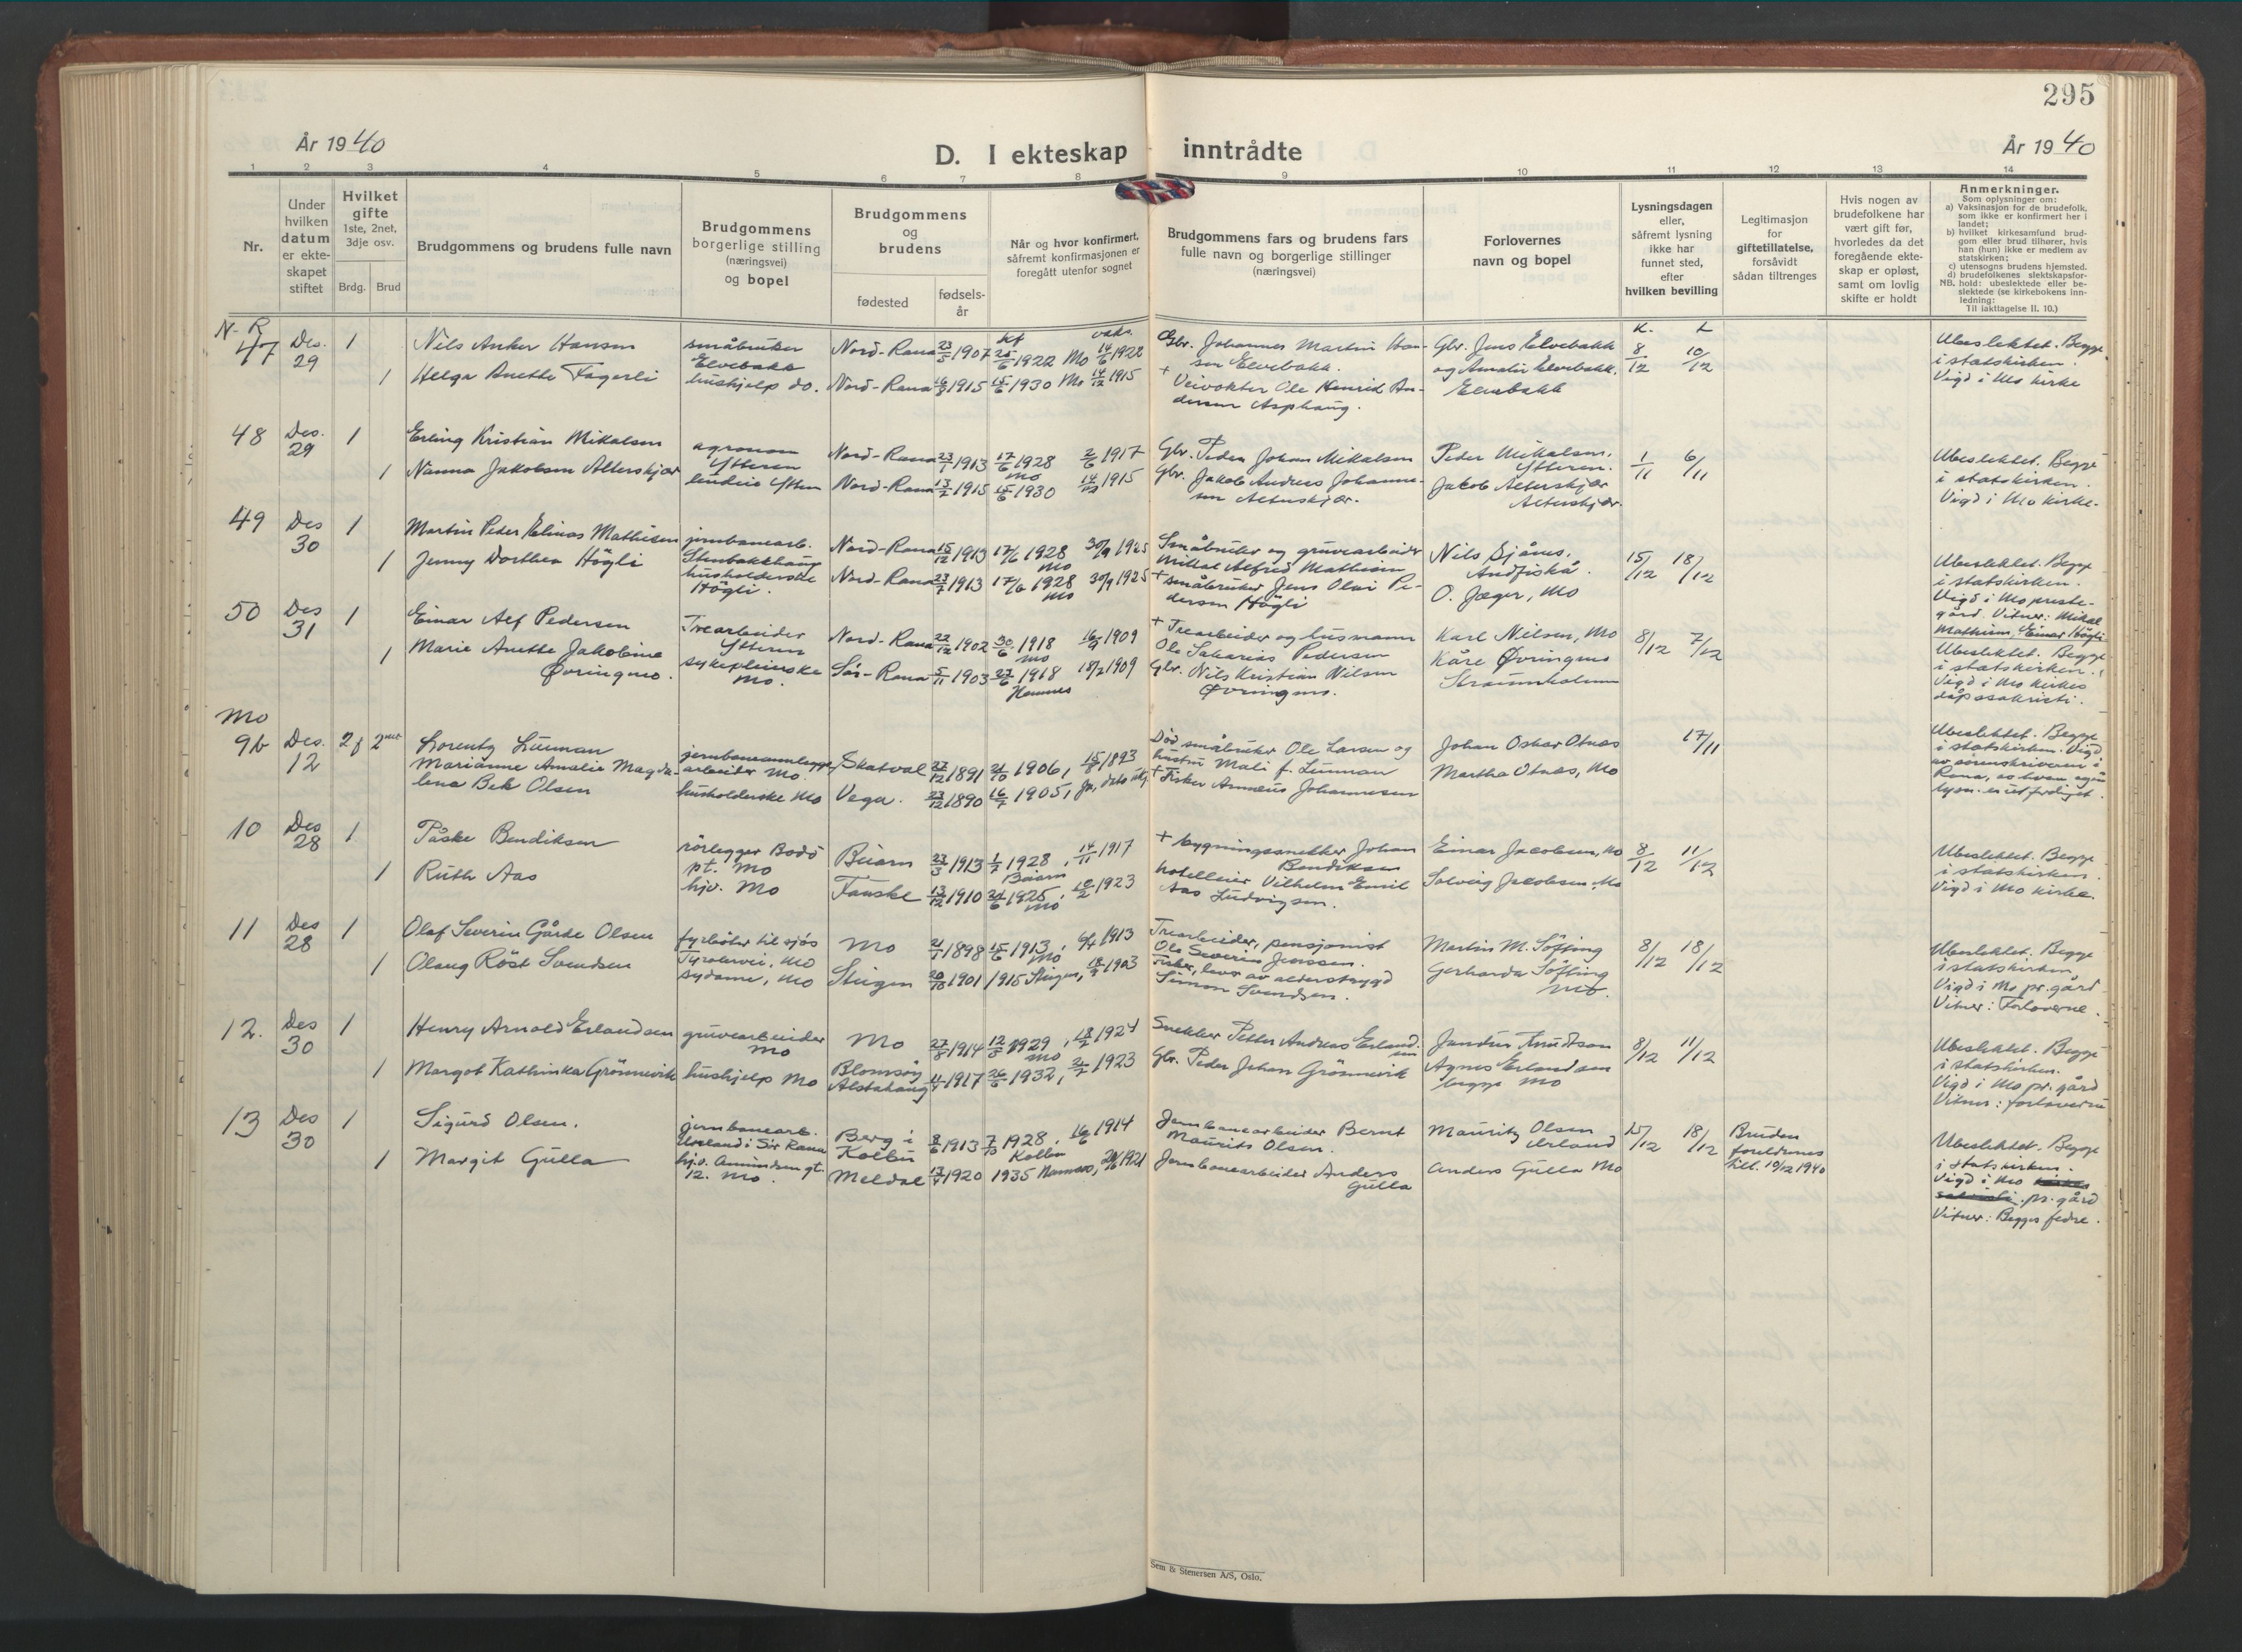 295
År 1940
D. I ekteskap inntrådte
År 1940
1 2 3 4 5 6 7 8 9 10 11 12 13 14
Nr.
Under
hvilken
datum
er ekte-
skapet
stiftet
Hvilket
gifte
1ste, 2net,
3dje osv.
Brdg. Brud
Brudgommens og brudens fulle navn
Brudgommens
borgerlige stilling
(næringsvei)
og bopel
Brudgommens
og
brudens
fødested
fødsels-
år
Når og hvor konfirmert,
såfremt konfirmasjonen er
foregått utenfor sognet
Brudgommens fars og brudens fars
fulle navn og borgerlige stillinger
(næringsvei)
Forlovernes
navn og bopel
Lysningsdagen
eller,
såfremt lysning
ikke har
funnet sted,
efter
hvilken bevilling
Legitimasjon
for
giftetillatelse,
forsåvidt
sådan tiltrenges
Hvis nogen av
brudefolkene har
vært gift før,
hvorledes da det
foregående ekte-
skap er opløst,
samt om lovlig
skifte er holdt
Anmerkninger.
Som oplysninger om:
a) Vaksinasjon for de brudefolk,
som ikke er konfirmert her i
landet;
b) hvilket kirkesamfund brud-
gom eller brud tilhører, hvis
han (hun) ikke er medlem av
statskirken;
c) utensogns brudens hjemsted.
d) brudefolkenes slektskapsfor-
NB. hold: ubeslektede eller be-
slektede (se kirkebokens inn-
ledning:
Til iakttagelse II. 10.)
N-R
47 Des. 29 1
Nils Anker Hansen
småbruker
Elvebakk
Nord-Rana 23/5 1907
kf 25/6 1922 Mo
vaks. 14/6 1922
Gbr. Johannes Martin Han-
sen Elvebakk.
Gbr. Jens Elvebakk
og Amalie Elvebakk.
Elvebakk
K. 8/12 L 10/12
Ubeslektet. Begge
i statskirken.
Vigd i Mo kirke
1 Helga Anette Fagerli
hushjelp do.
Nord-Rana 16/8 1915
15/6 1930 Mo 14/12 1915
+ Veivokter Ole Henrik An-
dersen Asphaug.
48 Des. 29 1
Erling Kristian Mikalsen
agronom
Ytteren
Nord-Rana 23/1 1913
17/6 1928 Mo 2/6 1917
Gbr. Peder Johan Mikalsen
Peder Mikalsen,
Ytteren.
1/11 6/11
Ubeslektet. Begge
i statskirken.
Vigd i Mo kirke.
1 Nanna Jakobsen Alterskjær
Nord-Rana 13/2 1915
15/6 1930
Gbr. Jakob Anders Johanne-
sen Alterskjær.
Jakob Alterskjær
Alterskjær.
49 Des 30 1
Martin Peder Elinas Mathisen
jernbanearb.
Stenbakkhaug
Nord-Rana 15/12 1913
17/6 1928 Mo 30/9 1925
Småbruker og gruvearbeider
Mikal Alfred Mathisen
Nils Sjånes,
Andfiskå.
15/12 18/12
Ubeslektet. Begge
i statskirken.
Vigd i Mo preste-
gård. Vitner: Mikal
Mathisen, Einar Högli
1 Jenny Dorthea Högli
husholderske
Högli.
Nord-Rana 23/7 1913
17/6 1928 Mo 30/9 1925
+ småbruker Jens Olai Pe-
dersen Högli
O. Jæger, Mo
50 Des 31 1
Einar Alf Pedersen
Trearbeider
Ytteren
Nord-Rana 22/12 1902
30/6 1918 Mo 16/9 1909
+ Trearbeider og husmann
Ole Sakarias Pedersen
Karl Nilsen, Mo
8/12 7/12
Ubeslektet. Begge
i statskirken.
Vigd i Mo kirkes
dåpssakristi.
1 Marie Anette Jakobine
Øvringmo.
sykepleierske
Mo.
Sör-Rana 5/11 1903
23/6 1918 Hemnes 18/2 1909
Gbr. Nils Kristian Nilsen
Øvringmo.
Kåre Øvringmo
Straumholmen
Mo
9b Des. 12 2f 2net
Lorentz Lunman
jernbaneanleggs-
arbeider Mo.
Skatval 27/12 1891
21/10 1906, 15/8 1893
Död småbruker Ole Larsen og
hustru Mali f. Lunman
Johan Oskar Otnes
Martha Otnes, Mo
17/11
Ubeslektet. Begge
i statskirken. Vigd
av sorenskriveren i
Rana, av hvem også
lysn. er utferdiget.
Marianne Amalie Magda-
lena Bek Olsen
husholderske Mo
Vega. 23/12 1890
16/7 1905,
+ Fisker Annæus Johannesen
10 Des 28 1
Påske Bendiksen
rörlegger Bodö
pt. Mo
Beiarn 23/3 1913
1/7 1928, Beiarn 14/11 1917
+ bygningssnekker Johan
Bendiksen
Einar Jacobsen, Mo
8/12 11/12
Ubeslektet. Begge
i statskirken.
Vigd i Mo kirke.
1 Ruth Aas
hjv. Mo
Fauske 13/12 1910
21/6 1925, Mo 10/2 1923
hotelleier Vilhelm Emil
Aas Ludvigsen.
Solveig Jacobsen Mo
11 Des 28 1
Olaf Severin Gårde Olsen
fyrböter til sjös
Tyrolervei, Mo
Mo 21/7 1898
15/6 1913, Mo 6/4 1913
Trearbeider, pensjonist
Ole Severin Jenssen.
Martin M. Söfting
8/12 18/12
Ubeslektet. Begge
i statskirken
Vigd i Mo pr.gård
Vitner: Forloverne.
1 Olaug Röst Svendsen
sydame, Mo
Steigen 20/10 1901
1915 Steigen, 18/9 1903
Fisker, lever av alderstrygd
Simon Svendsen.
Gerharda Söfting
Mo.
12. Des 30 1
Henry Arnold Erlandsen
gruvearbeider
Mo
Mo 27/8 1914
12/5 1929, Mo 18/2 1924
Snekker Petter Andreas Erland-
sen
Jandur Knudtson
8/12 11/12
Ubeslektet. Begge
i statskirken.
Vigd i Mo pr. gård
Vitner: forloverne
1 Margot Kathinka Grönnevik
hushjelp Mo
Blomsøy
Alstahaug 11/4 1917
26/6 1932, 2/7 1923
Gbr. Peder Johan Grönnevik
Agnes Erlandsen
begge Mo
13 Des 30 1
Sigurd Olsen.
jernbanearb.
Urland i Sör Rana
Berg i
Kolbu 8/6 1913
7/10 1928. Kolbu 16/6 1914
Jernbanearbeider Bernt
Maurits Olsen.
Mauritz Olsen
Urland
15/12 18/12
Bruden
foreldrenes
till. 10/12 1940
Ubeslektet. Begge
i statskirken.
Vigd i Mo
pr. gård
Vitner: Begges fedre.
1 Margit Gulla
hjv. Amundsen gt.
12. Mo.
Meldal 17/7 1920
1935 Namsos, 29/6 1921
Jernbanearbeider Anders
Gulla
Anders Gulla Mo
Sem & Stenersen A/S, Oslo.